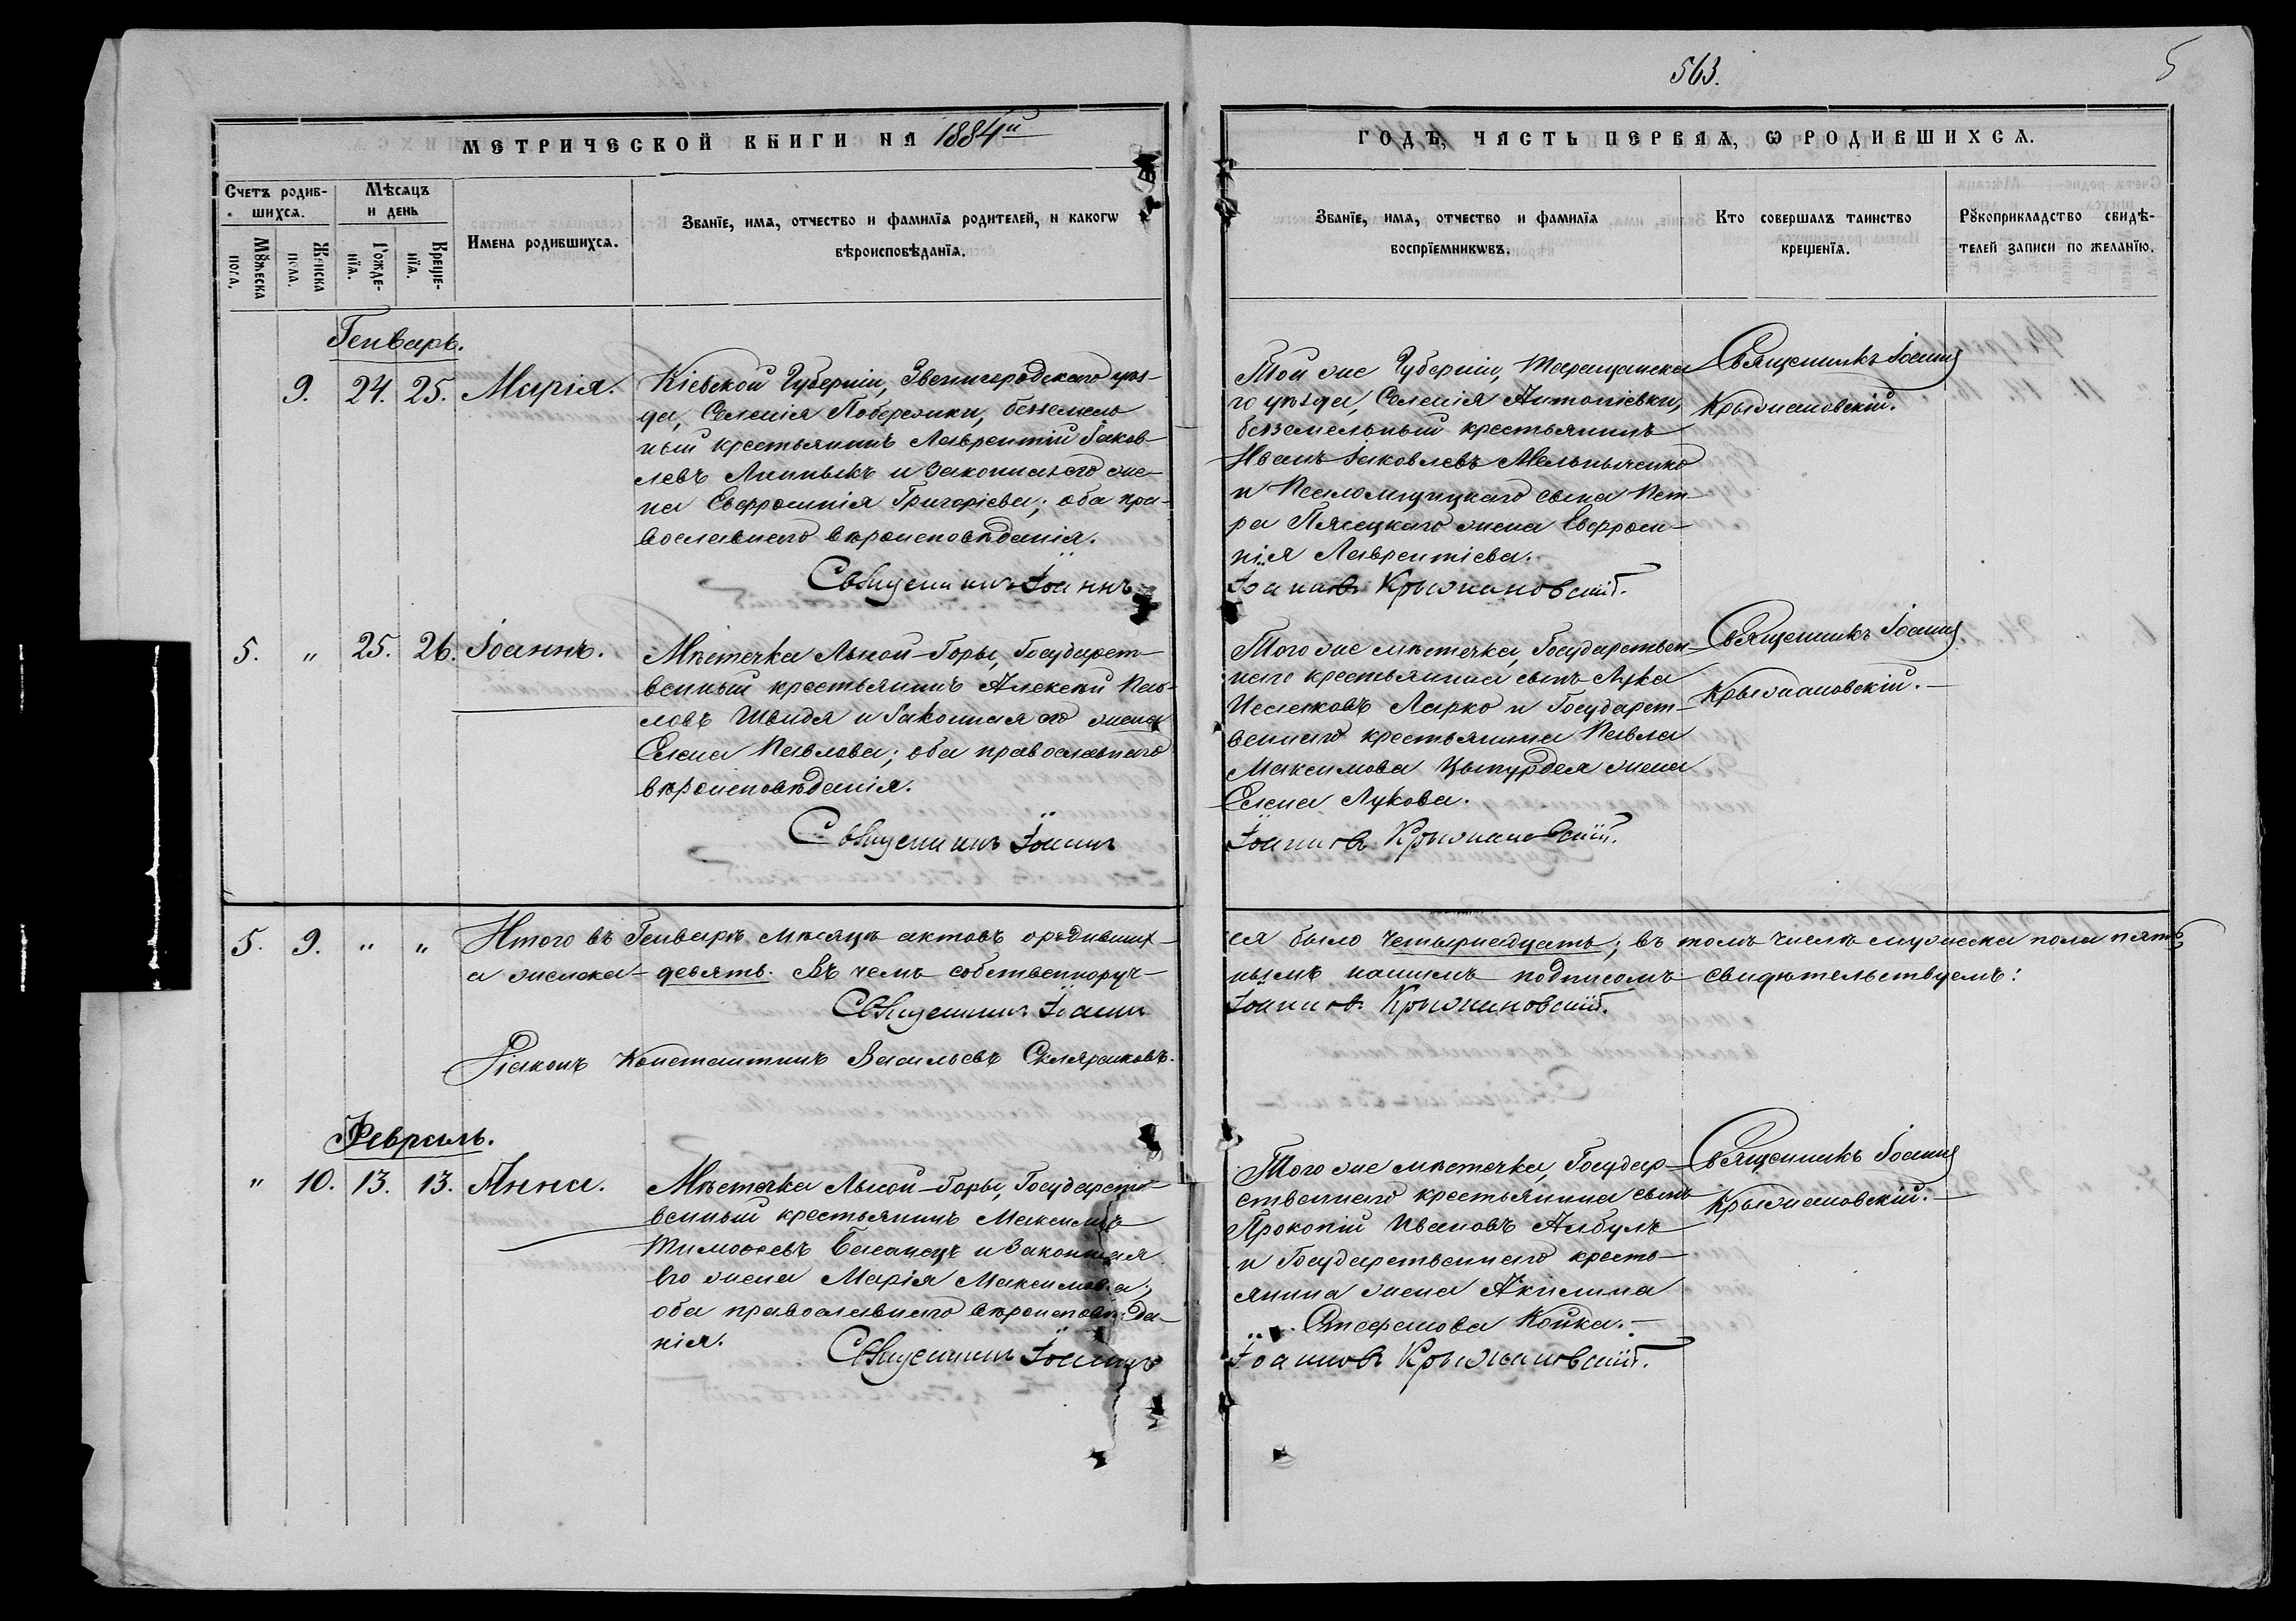 563.
5
МЕТРИЧЕСКОЙ КНИГИ НА 1884й
ГОДЪ, ЧАСТЬ ПЕРВАЯ, Ѡ РОДИВШИХСѦ.
Счетъ родив-
шихсѧ.
Мѣсѧцъ
и день
Мꙋжеска
пола.
Женска
пола.
Рожде-
нїѧ.
Креще-
нїѧ.
Имена родившихсѧ.
Званїе, имѧ, отчество и фамилїѧ родителей, и какогѡ
вѣроисповѣданїѧ.
Званїе, имѧ, отчество и фамилїѧ
воспрїемникѡвъ.
Кто совершалъ таинство
крещенїѧ.
Рꙋкоприкладство свидѣ-
телей записи по желанїю.
Генварь.
9. 24. 25. Марія.
Кіевской Губерніи, Звенигородскаго уѣз-
да, Селенія Побережки, безземель
ный крестьянинъ Лаврентій Іаков-
левъ и законная его же-
на Евфросинія Григоріева; оба пра-
вославнаго вѣроисповѣданія.
Священникъ Іоаннъ
Той же Губерніи, Таращанска
го уѣзда, Селенія Антоніевки,
безземельный крестьянинъ
Иванъ Іаковлевъ Мельниченко
и Псаломщицкаго сына Пет-
ра Пясецкаго жена Евфроси-
нія Лаврентіева.
Іоанновъ Крыжановскій.
Священникъ Іоаннъ
Крыжановскій.
5. " 25. 26. Іоаннъ.
Мѣстечка Лысой-Горы, Государст-
венный крестьянинъ Алексѣй Пав-
ловъ Швидя и Законная его жена
Елена Павлова; оба православнаго
вѣроисповѣданія.
Священникъ Іоаннъ
Того же мѣстечка, Государствен-
наго крестьянина сынъ Лука
Ларко и Государст-
веннаго крестьянина Павла
Максимова жена
Елена Лукова.
Іоанновъ Крыжановскій.
Священникъ Іоаннъ
Крыжановскій.-
5. 9. " " Итого въ Генварѣ мѣсяцѣ актовъ о родивших-
ся было четырнадцать; въ томъ числѣ мужеска пола пять,
а женска - девять. Въ чемъ собственноруч-
нымъ нашимъ подписомъ свидѣтельствуемъ:
Священникъ Іоаннъ
Іоанновъ Крыжановскій.
Діаконъ Константинъ Васильевъ Скляренковъ.
Февраль.
" 10. 13. 13. Анна.
Мѣстечка Лысой-Горы, Государст-
венный крестьянинъ Максимъ
Тимоѳеевъ и Законная
Его жена Марія Максимова;
оба православнаго вѣроисповѣда-
нія.
Священникъ Іоаннъ
Того же мѣстечка, Государ-
ственнаго крестьянина сынъ
Прокопій Ивановъ Албулъ
и Государственнаго кресть-
янина жена Акилина
Стефанова Койка.-
Іоанновъ Крыжановскій.
Священникъ Іоаннъ
Крыжановскій.-